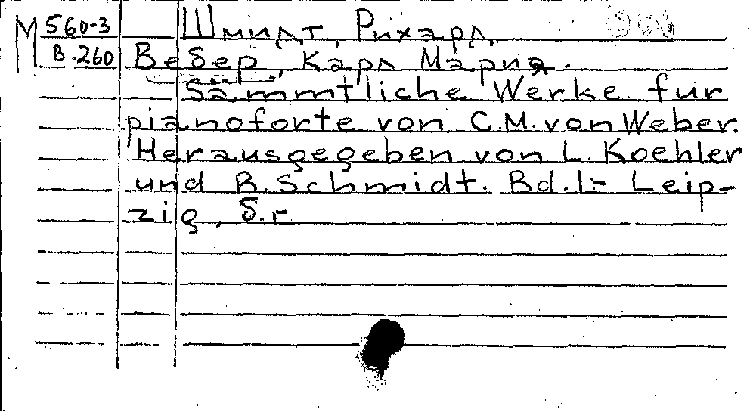 М 560-3 Шмидт, Рихард.
В.260 Вебер, Карл Мария.
Sämmtliche Werke für
pianoforte von C.M. von Weber.
Herausgegeben von L. Koehler
und R. Schmidt. Bd.1- Leip-
zig, б.г.